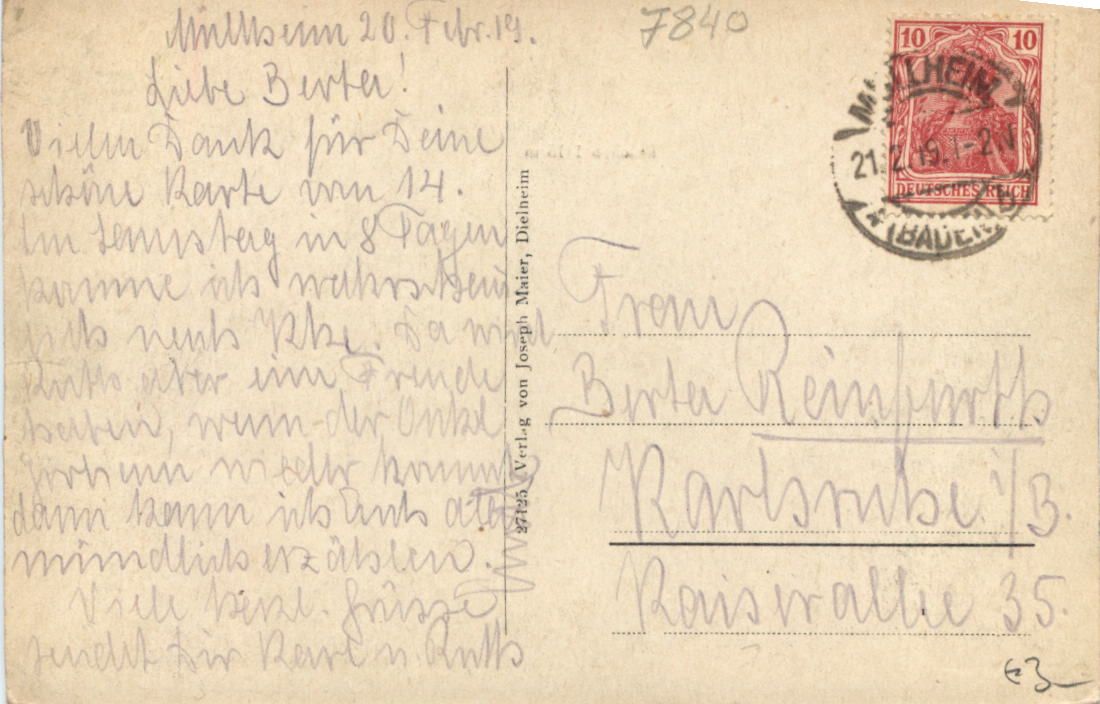 Müllheim 20. Febr. 19.
Liebe Berta!
Vielen Dank für Deine
schöne Karte vom 14.
Am Samstag in 8 Tagen
komme ich wahrschein
lich nach Khe. Da wird
Ruth aber eine Freude
haben, wenn der Onkel
wieder kommt
dann kann ich Euch alles
mündlich erzählen.
Viele herzl. Grüsse
sendet Dir Karl u. Ruth
27125 Verlag von Joseph Maier, Dielheim
7840
10 10
DEUTSCHES REICH
MÜLLHEIM
21.2.19.1-2N
(BADEN)
Frau
Berta Reinfurth
Karlsruhe i/B.
Kaiserallee 35.